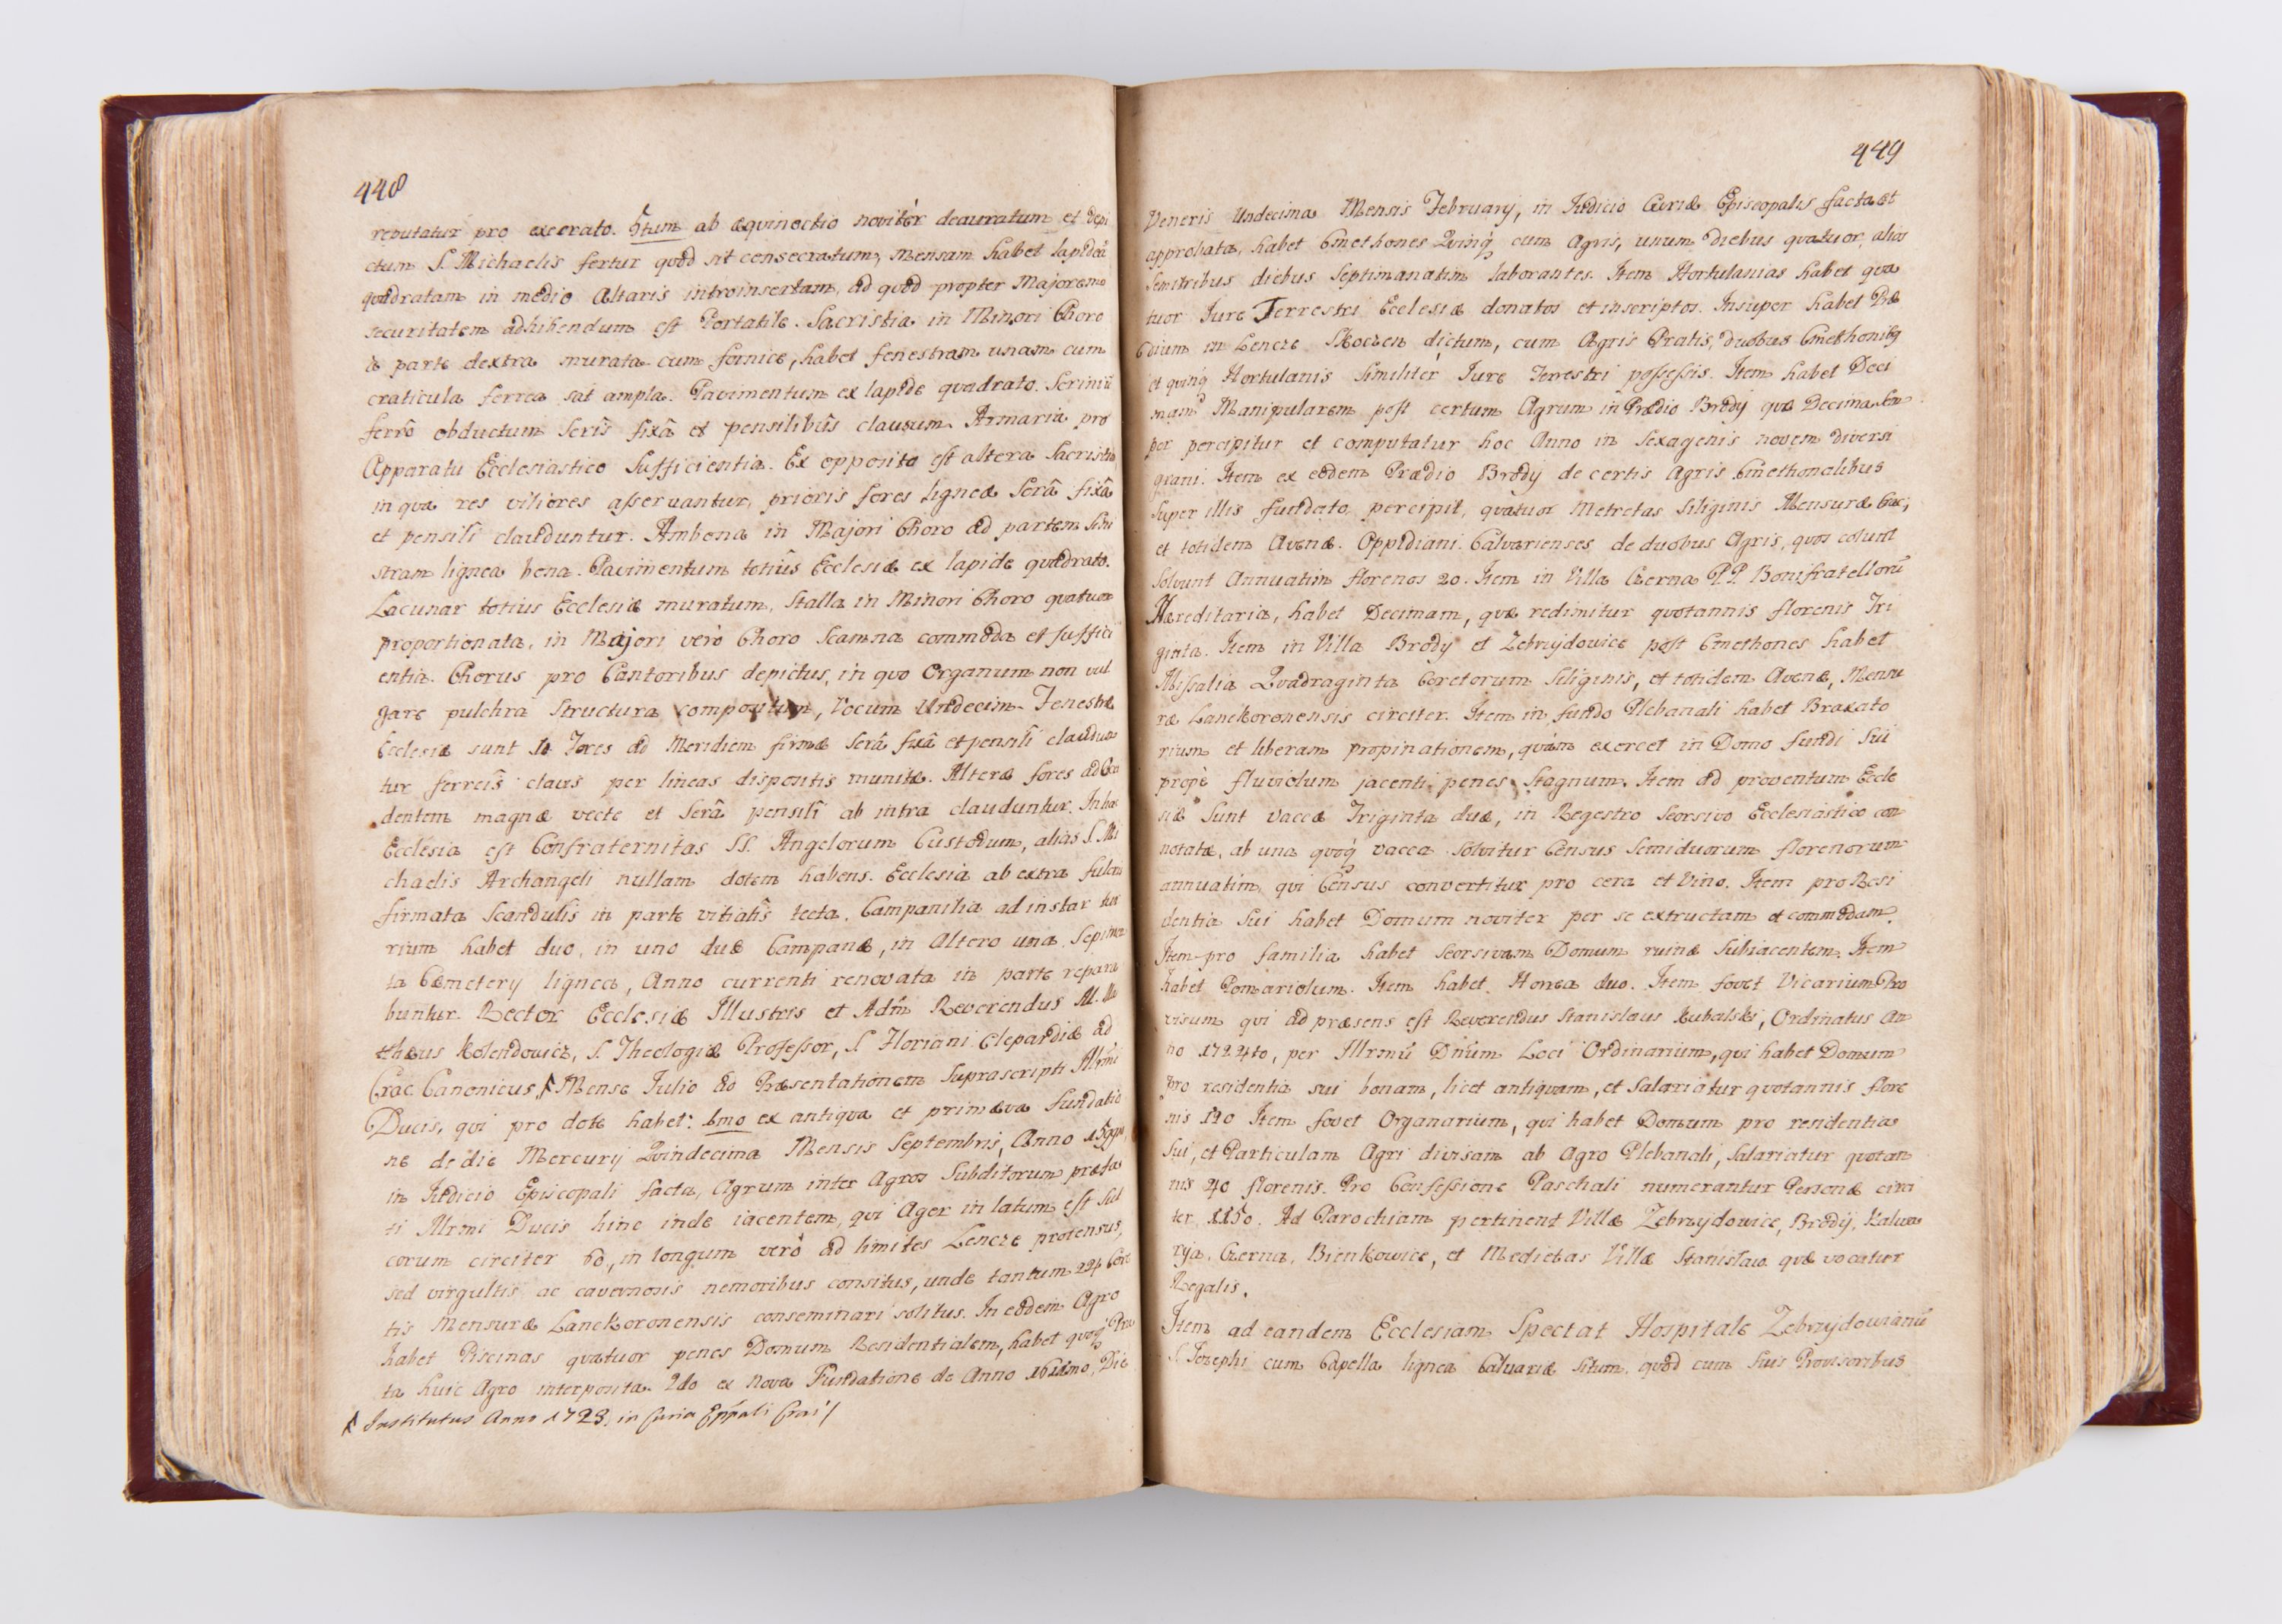 448
reputatur pro execrato. 5tum ab æquinoctio novitèr deauratum et depi
ctum S. Michaelis fertur quòd sit consecratum, Mensam habet lapideã
quadratam in medio Altaris introinsertam, ad quod propter Majorem
securitatem adhibendum est Portatile. Sacristia in Minori Choro
à parte dextra murata cum fornice, habet fenestram unam cum
craticula ferrea sat ampla. Pavimentum ex lapide quadrato. Scriniũ
ferrô obductum serîs fixâ et pensilibûs clausum. Armaria pro
Apparatu Ecclesiastico Sufficientia. Ex opposito est altera Sacristia
in qua res viliores asservantur, prioris fores ligneæ Serâ fixâ
et pensilî clauduntur. Ambona in Majori Choro ad partem Sini
stram lignea bona. Pavimentum totiûs Ecclesiæ ex lapide quadrato.
Lacunar totius Ecclesiæ muratum, Stalla in Minori Choro quatuor
proportionata, in Majori verò Choro Scamna commoda et suffici
entia. Chorus pro Cantoribus depictus, in quo Organum non vul
gare pulchra Structura compositum, Vocum Undecim. Fenestræ
Ecclesiæ sunt 10 Fores ad Meridiem firmæ Serâ fixâ et pensilî claudun
tur ferreîs clavis per lineas dispositis munitæ. Alteræ fores ad Occi
dentem magnæ vecte et Serâ pensilî ab intra clauduntur. In hac
Ecclesia est Confraternitas SS. Angelorum Custodum, alias S. Mi
chaelis Archangeli nullam dotem habens. Ecclesia ab extra fulcris
firmata Scandulîs in parte vitiatîs tecta. Campanilia ad instar tur
rium habet duo, in uno duæ Campanæ, in Altero una. Sepimen
ta Cæmeterij lignea, Anno currenti renovata in parte repara
buntur. Rector Ecclesiæ Illustris et Adm̃ Reverendus M. Ma
thæus Kolendowicz, S. Theologiæ Professor, S. Floriani Clepardiæ ad
Crac. Canonicus, Mense Julio ad Præsentationem Suprascripti Illrmi
Ducis, qui pro dote habet: 1mo ex antiqua et primæva fundatio
ne de die Mercurij Quindecima Mensis Septembris, Anno
in Iudicio Episcopali facta, Agrum inter Agros Subditorum præfa
ti Illrmi Ducis hinc inde iacentem, qui Ager in latum est Sul
corum circiter 60, in longum verò ad limites Lencze protensus,
sed virgultis ac cavernosis nemoribus consitus, unde tantum 24 Core
tis Mensuræ Lanckoronensis conseminari solitus. In eodem Agro
habet Piscinas quatuor penes Domum Residentialem, habet quoq̃ Pra
ta huic Agro interposita. 2do ex nova Fundatione de Anno Die
Institutus Anno 1723. in Curia Epp̃ali Crac:/
449
Veneris Undecima Mensis February, in Iudicio Curiæ Episcopalis facta et
approbata, habet Cmethones Quinq̃ cum Agris, unum diebus quatuor, alios
Semitribus diebus Septimanatim laborantes. Item Hortulanias habet qua
tuor Jure Terrestri Ecclesiæ donatos et inscriptos. Insuper habet Præ
dium in Lencze Skoczen dictum, cum Agris Pratis, duobus Cmethonibq
et quinq̃ Hortulanis Similitèr Jure Terrestri possessis. Item habet Deci
mam Manipularem post certum Agrum in Prædio Brody quæ Decima Sem
per percipitur et computatur hoc Anno in Sexagenis novem diversi
grani. Item ex eodem Prædio Brody de certis Agris Cmethonalibus
Super illis fundato percipit, quatuor Metretas Siliginis Mensuræ Crac;
et totidem Avenæ. Oppidiani Calvarienses de duobus Agris, quos colunt
Solvunt Annuatim florenos 20. Item in Villa Czerna P.P. Bonifratellorũ
Hæreditaria, habet Decimam, quæ redimitur quotannis florenis Tri
ginta. Item in Villa Brody et Zebrzydowice post Cmethones habet
Missalia Quadraginta Coretorum Siliginis, et totidem Avenæ, Mensu
ræ Lanckoronensis circiter. Item in fundo Plebanali habet Braxato
rium et liberam propinationem, quàm exercet in Domo fundi Sui
propè fluviolum jacenti penes Stagnum. Item ad proventum Eccle
siæ Sunt vaccæ Triginta duæ, in Regestro Seorsivo Ecclesiastico con
notatæ, ab una quoq̃ vacca Solvitur Census Semiduorum florenorum
annuatim, qui Census convertitur pro cera et Vino. Item pro Resi
dentia Sui habet Domum noviter per se extructam et commodam.
Item pro familia habet Seorsivam Domum ruinæ Subiacentem. Item
habet Pomariolum. Item habet Horrea duo. Item fovet Vicarium Pro
visum qui ad præsens est Reverendus Stanislaus Kubalski, Ordinatus An
no 1724to, per Illrmũ Dnũm Loci Ordinarium, qui habet Domum
pro residentia sui bonam, licet antiquam, et Salariatur quotannis flore
nis 120 Item fovet Organarium, qui habet Domum pro residentia
Sui, et Particulam Agri divisam ab Agro Plebanali, Salariatur quotan
nis 40 florenis. Pro Confessione Paschali numerantur Personæ circi
ter 1150. Ad Parochiam pertinent Villæ Zebrzydowice, Brody, Kalwa
rya, Czerna, Bienkowice, et Medietas Villæ Stanisław quæ vocatur
Regalis.
Item ad eandem Ecclesiam Spectat Hospitale Zebrzydovianũ
S. Josephi cum Capella lignea Calvariæ situm, quod cum Suis Provisoribus